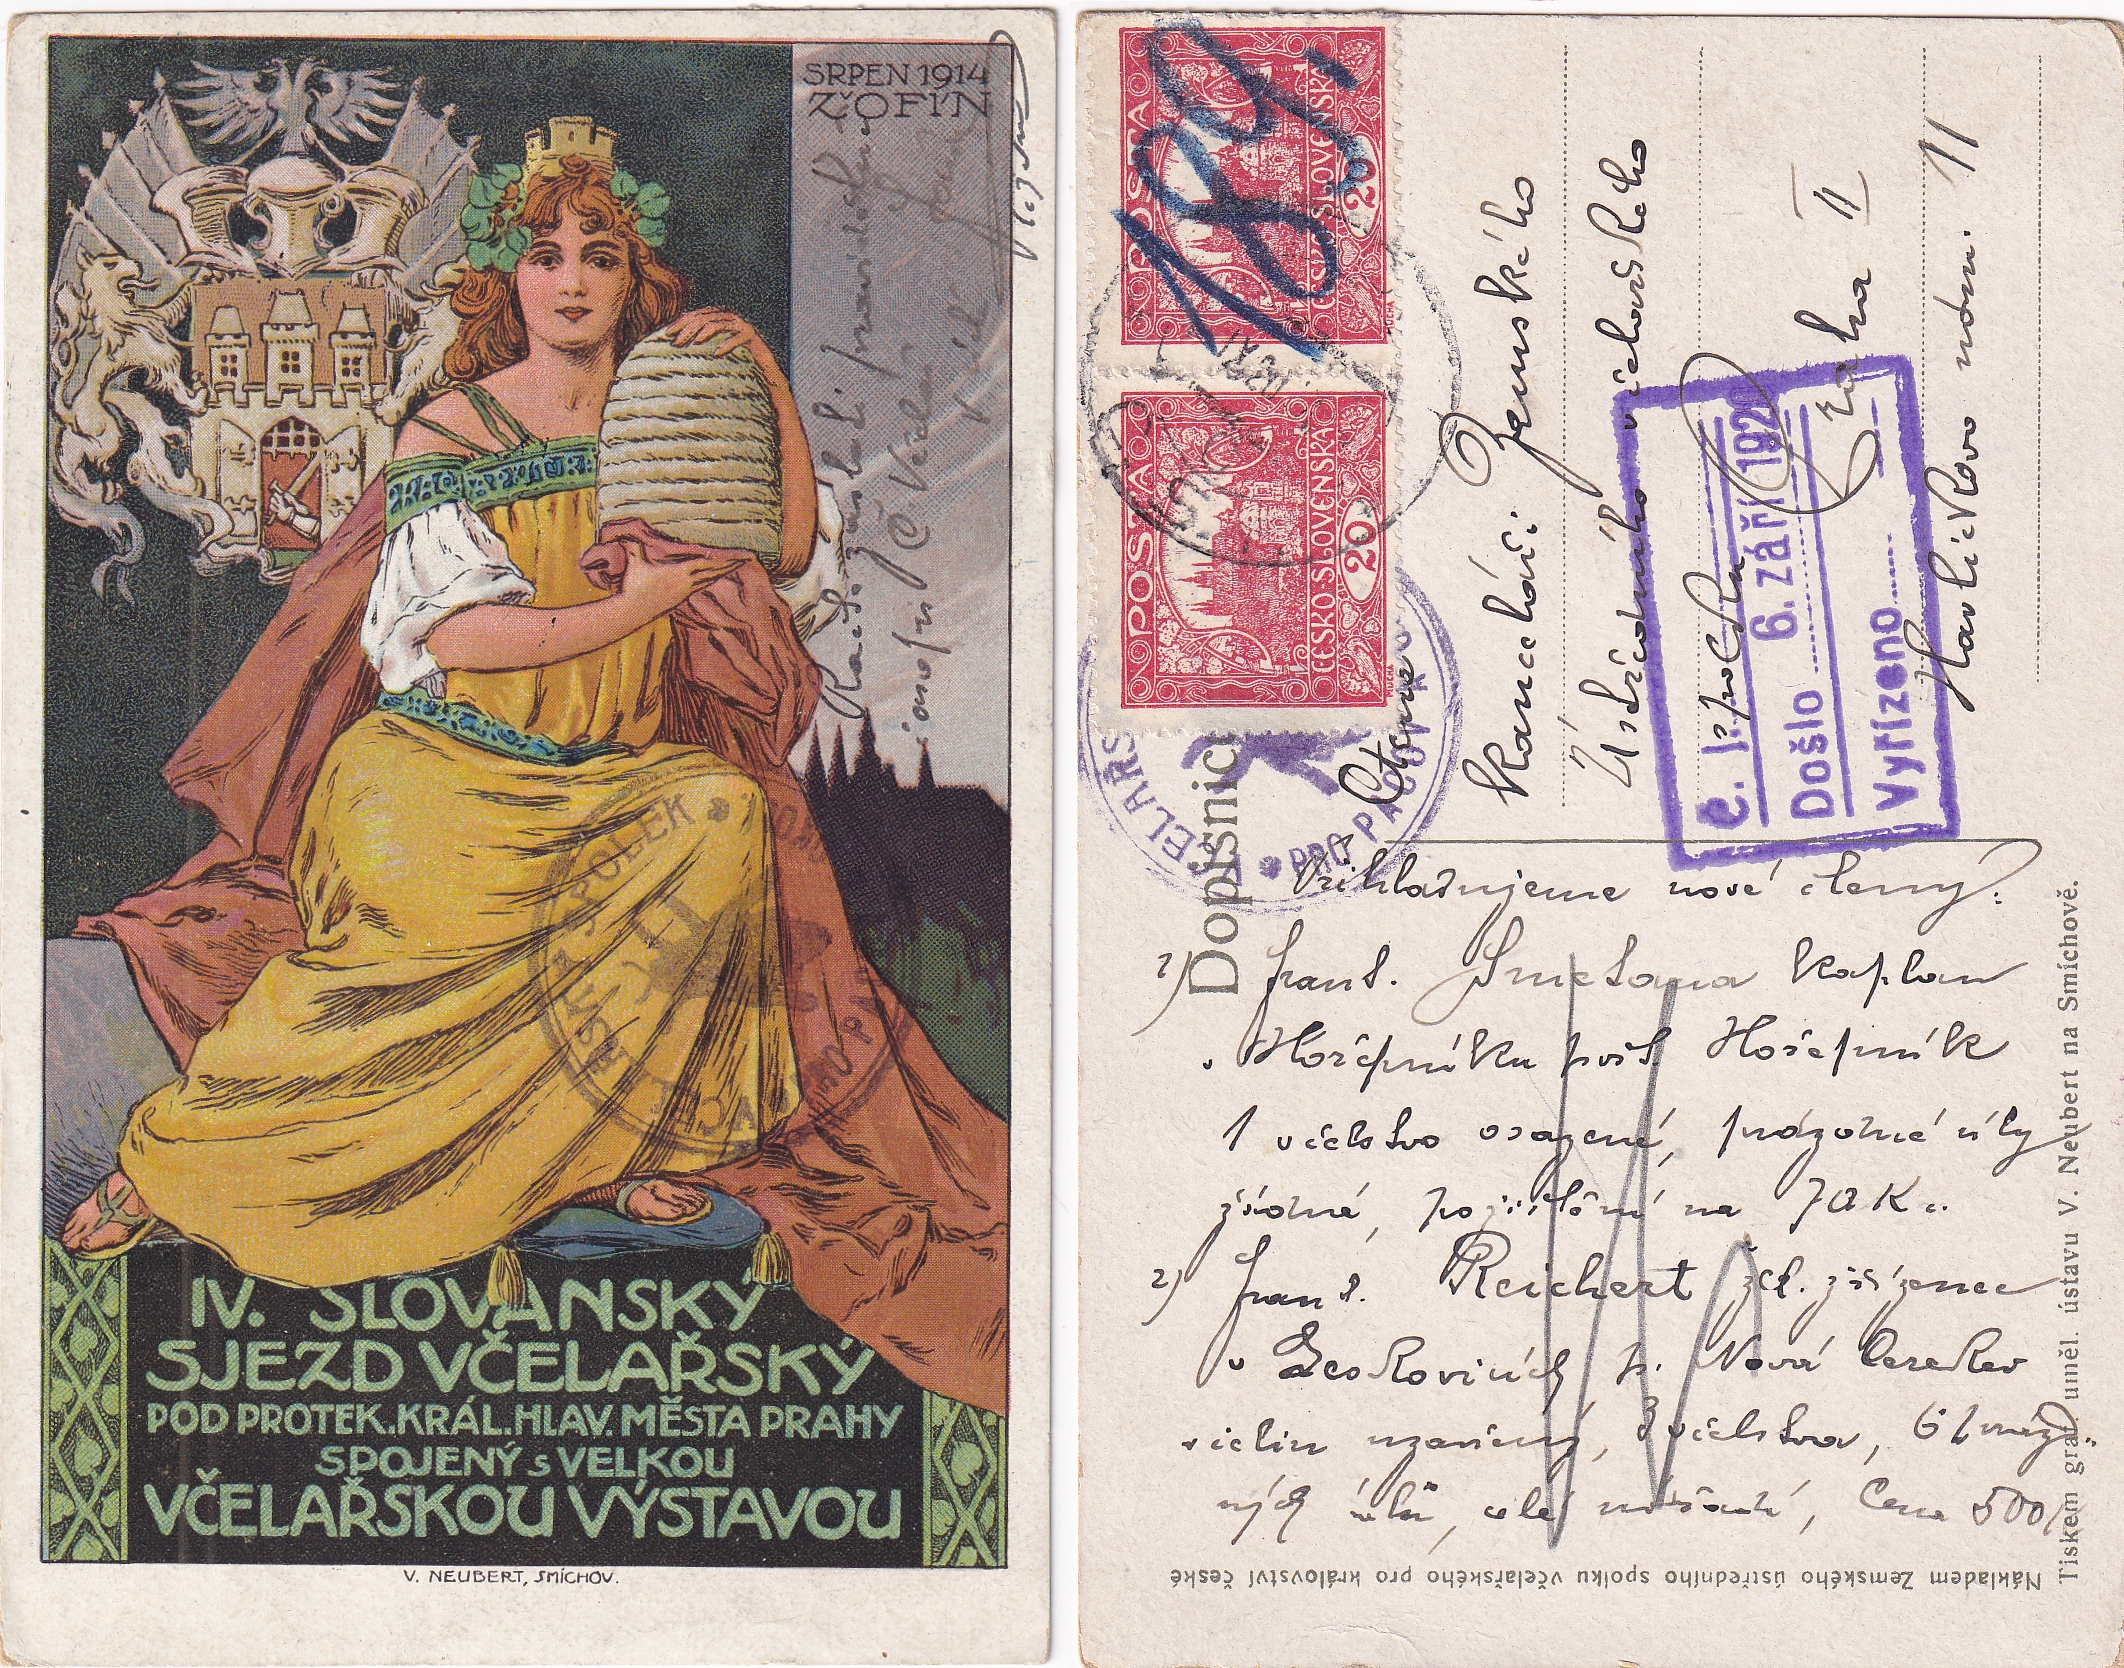 SRPEN 1914
ŽOFÍN
Račte zaslati
IV. SLOVANSKÝ
SJEZD VČELAŘSKÝ
POD PROTEK. KRÁL. HLAV. MĚSTA PRAHY
SPOJENÝ s VELKOU
VČELAŘSKOU VÝSTAVOU
V. NEUBERT, SMÍCHOV.
SPOLEK
POŠTA
ČESKO-SLOVENSKÁ
20
MUCHA
POŠTA
ČESKO-SLOVENSKÁ
20
MUCHA
189.
PRO PACOV
Dopisnice
Ctěné
kanceláři Zemského
Ústředního včelařského
spolku
Praha II
Havlíčkovo nám. 11
č. j.
6. září 1920
Došlo
Vyřízeno
Přihlašujeme nové členy:
1) Frant. Smetana kaplan
v Hořepníku pošt. Hořepník
1 včelstvo osazené, prázdné úly
žádné, pojištění na 70 K
2) Frant. Reichert žel. zřízenec
v Leskovicích p. Nová Cerekev
včelín uzavřený, 3 včelstva, 6 prázd-
ných úlů, celé nářadí, Cena 500
Nákladem Zemského ústředního spolku včelařského pro království české
Tiskem graf. uměl. ústavu V. Neubert na Smíchově.